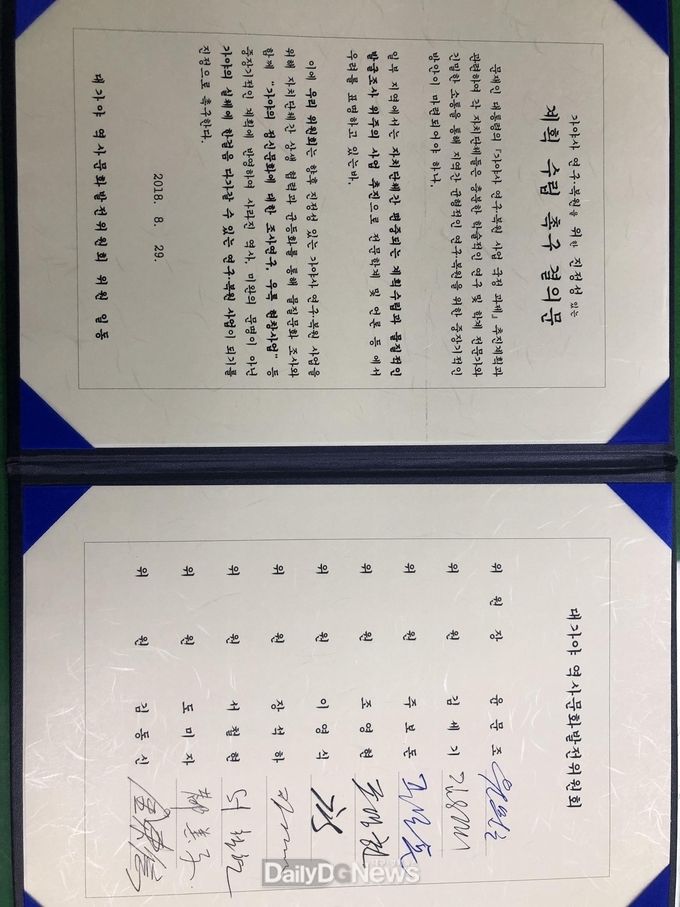 가야사 연구·복원을 위한 진정성 있는
계획 수립 촉구 결의문
문재인 대통령의 「가야사 연구·복원 사업 국정 과제」 추진계획과
관련하여 각 자치단체들은 충분한 학술적인 연구 및 학계 전문가와
긴밀한 소통을 통해 지역간 균형적인 연구·복원을 위한 중장기적인
방안이 마련되어야 하나,
일부 지역에서는 자치단체간 편중되는 계획수립과 물질적인
발굴조사 위주의 사업 추진으로 전문학계 및 언론 등 에서
우려를 표명하고 있는바,
이에 우리 위원회는 향후 진정성 있는 가야사 연구·복원 사업을
위해 자치단체간 상생 협력과 균등화를 통해 물질문화 조사와
함께 "가야의 정신문화에 대한 조사연구, 우륵 현창사업" 등
중장기적인 계획에 반영하여 사라진 역사, 미완의 문명이 아닌
가야의 실체에 한걸음 다가갈 수 있는 연구·복원 사업이 되기를
진정으로 촉구한다.
2018. 8. 29.
대가야 역사문화발전위원회 위원 일동
대가야 역사문화발전위원회
위 원 장 윤 문 조
위 원 김 세 기
위 원 주 보 돈
위 원 조 영 현
위 원 이 영 식
위 원 장 석 하
위 원 서 철 현
위 원 도 미 자
위 원 김 동 신
DailyDGNews